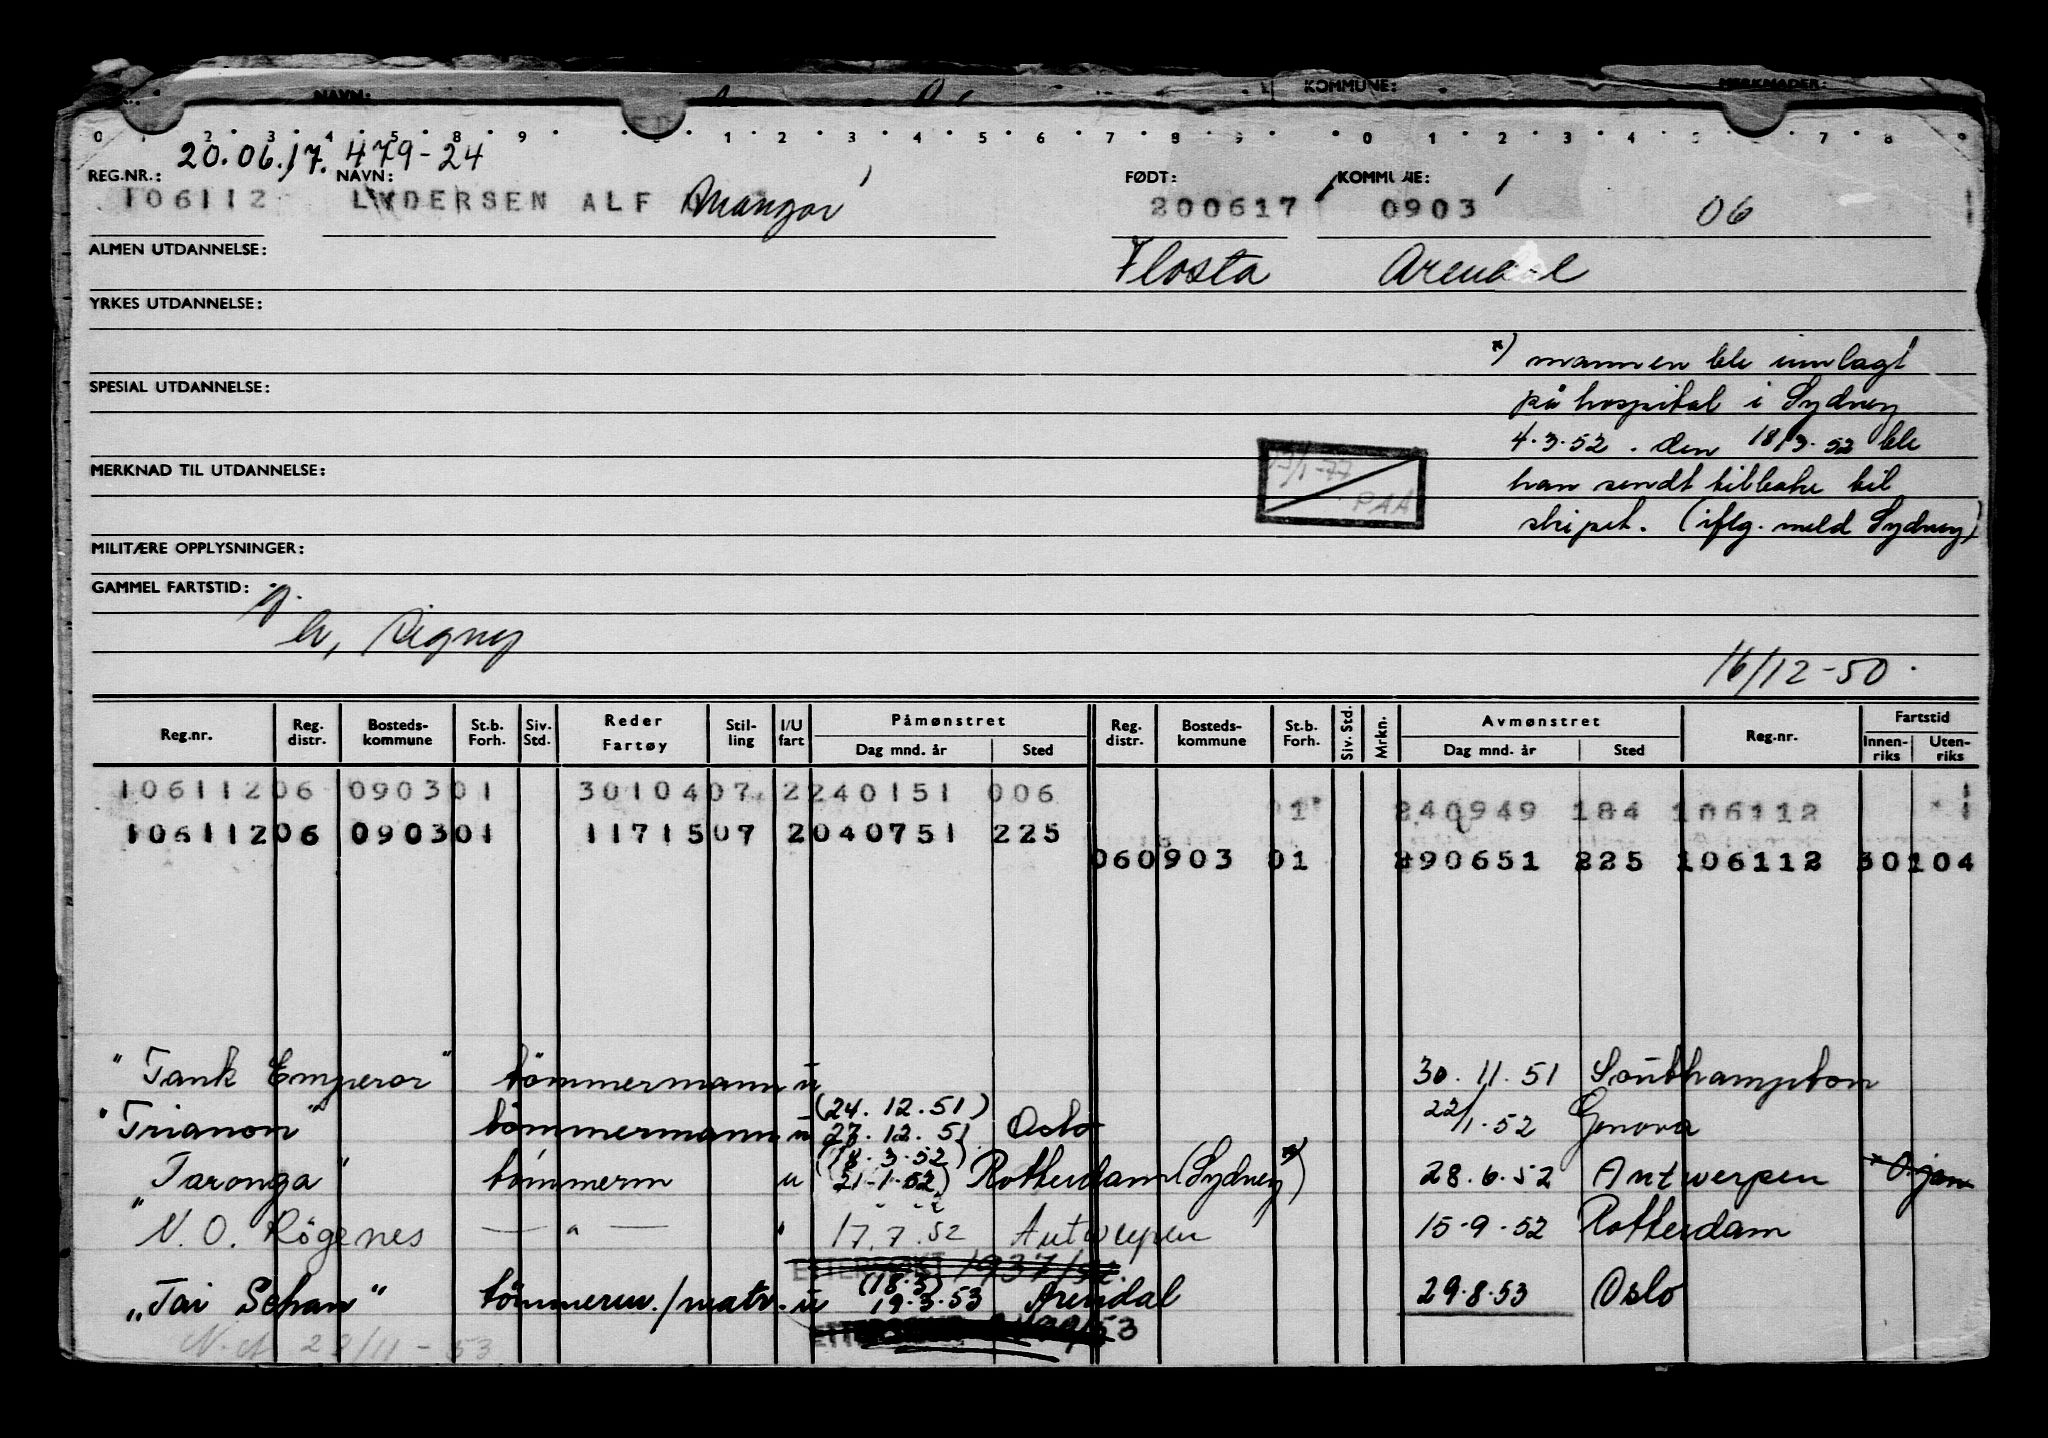 NAVN: KOMMUNE: MERKNADER:
0 1 2 3 4 5 6 8 9 1 2 3 4 5 6 7 8 9 0 1 2 3 4 5 6 7 8 9
20.06.17. 479-24
REG.NR.: NAVN: FØDT: KOMMUNE:
106112 LYDERSEN ALF Mangor 200617 0903 06
ALMEN UTDANNELSE: Flosta Arendal
YRKES UTDANNELSE:
*) mannen ble innlagt
SPESIAL UTDANNELSE: på hospital i Sydney
4.3.52. den 18/3.52 ble
MERKNAD TIL UTDANNELSE: -77
han sendt tilbake til
PAA
skipet. (iflg. meld Sydney)
MILITÆRE OPPLYSNINGER:
GAMMEL FARTSTID:
h, Signey
16/12-50.
Reg.nr. Reg. distr. Bosteds-kommune St.b. Forh. Siv. Std. Reder Fartøy Stil-ling I/U fart Påmønstret Dag mnd. år Sted Reg. distr. Bosteds-kommune St.b. Forh. Siv. Std. Mrkn. Avmønstret Dag mnd. år Sted Reg.nr. Fartstid Innen-riks Uten-riks
106112 06 0903 01 30104 07 2 240151 006
01 240949 184 106112
106112 06 0903 01 11715 07 2 040751 225
06 0903 01 290651 225 106112 30104
"Tank Emperor" tömmermann u 30.11.51 Southampton
(24.12.51)
"Trianon" tömmermann u 27.12.51 Oslo 22/1.52 Genova
(18.3.52)
"Taronga" tömmerm u 21-1-52 Rotterdam (Sydney *) 28.6.52 Antwerpen
"N.O. Rögenes — " — " 17.7.52 Antwerpen 15.9.52 Rotterdam
ETTERSØKT 1937/52.
(18.3)
"Tai Schan" tömmerm./matr. u 19.3.53 Arendal 29.8.53 Oslo
/53